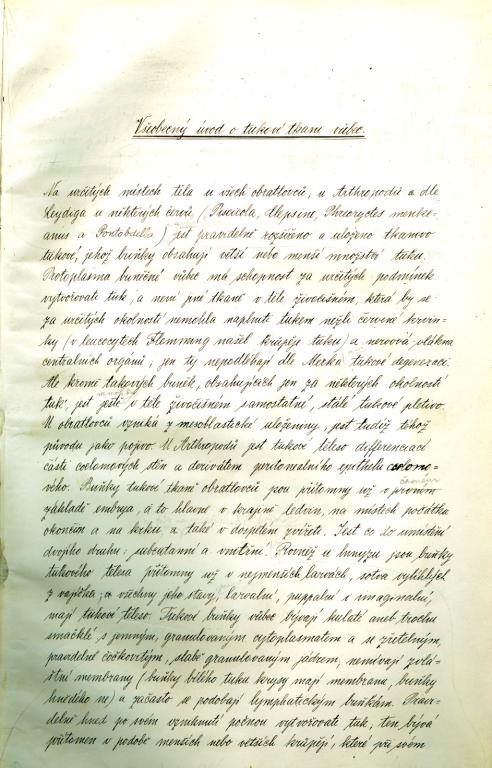 Všeobecný úvod o tukové tkani vůbec.
Na určitých místech těla u všech obratlovců, u Arthropodů a dle
Leydiga u některých červů, (Piscicola, Clepsine, Phreoryctes menke-
anus a Pontobdella) jest pravidelně rozšířeno a uloženo tkanivo
tukové, jehož buňky obsahují větší nebo menší množství tuku.
Protoplasma buněčné vůbec má schopnost za určitých podmínek
vytvořovati tuk, a není jiné tkaně v těle živočišném, která by se
za určitých okolností nemohla naplniti tukem nežli červené krvin-
ky (v leucocytech Flemming našel krůpěje tuku) a nervová vlákna
centrálních orgánů; jen ty nepodléhají dle Mecka tukové degeneraci.
Ale kromě takových buněk, obsahujících jen za některých okolností
tuk, jest ještě v těle živočišném samostatné, stálé tukové pletivo.
U obratlovců vzniká z mesoblastické uloženiny, jest tudíž téhož
původu jako pojivo. U Arthropodů jest tukové těleso differenciací
části coelomových stěn a derivátem peritoneálního epithelu coelomo-
vého. Buňky tukové tkaně obratlovců jsou přítomny už v prvním
základě embrya, a to hlavně v krajině ledvin, na místech počátku
končin a na krku, a také v dospělém zvířeti. Jest co do umístění
dvojího druhu, subcutanní a vnitřní. Rovněž u hmyzu jsou buňky
tukového tělesa přítomny už v nejmenších larvách, sotva vylíhlých
z vajíčka; a všechny jeho stavy, larvální, puppální i imaginální,
mají tukové těleso. Tukové buňky vůbec bývají kulaté aneb trochu
smačklé s jemným, granulovaným cytoplasmatem a se zřetelným,
pravidelně čočkovitým, slabě granulovaným jádrem, nemívají zvlá-
štní membrany (buňky bílého tuku krysy mají membranu, buňky
hnědého ne) a začasto se podobají lymphatickým buňkám. Pravi-
delně hned po svém vzniknutí počnou vytvořovati tuk, ten bývá
přítomen v podobě menších nebo větších krůpějí, které při svém